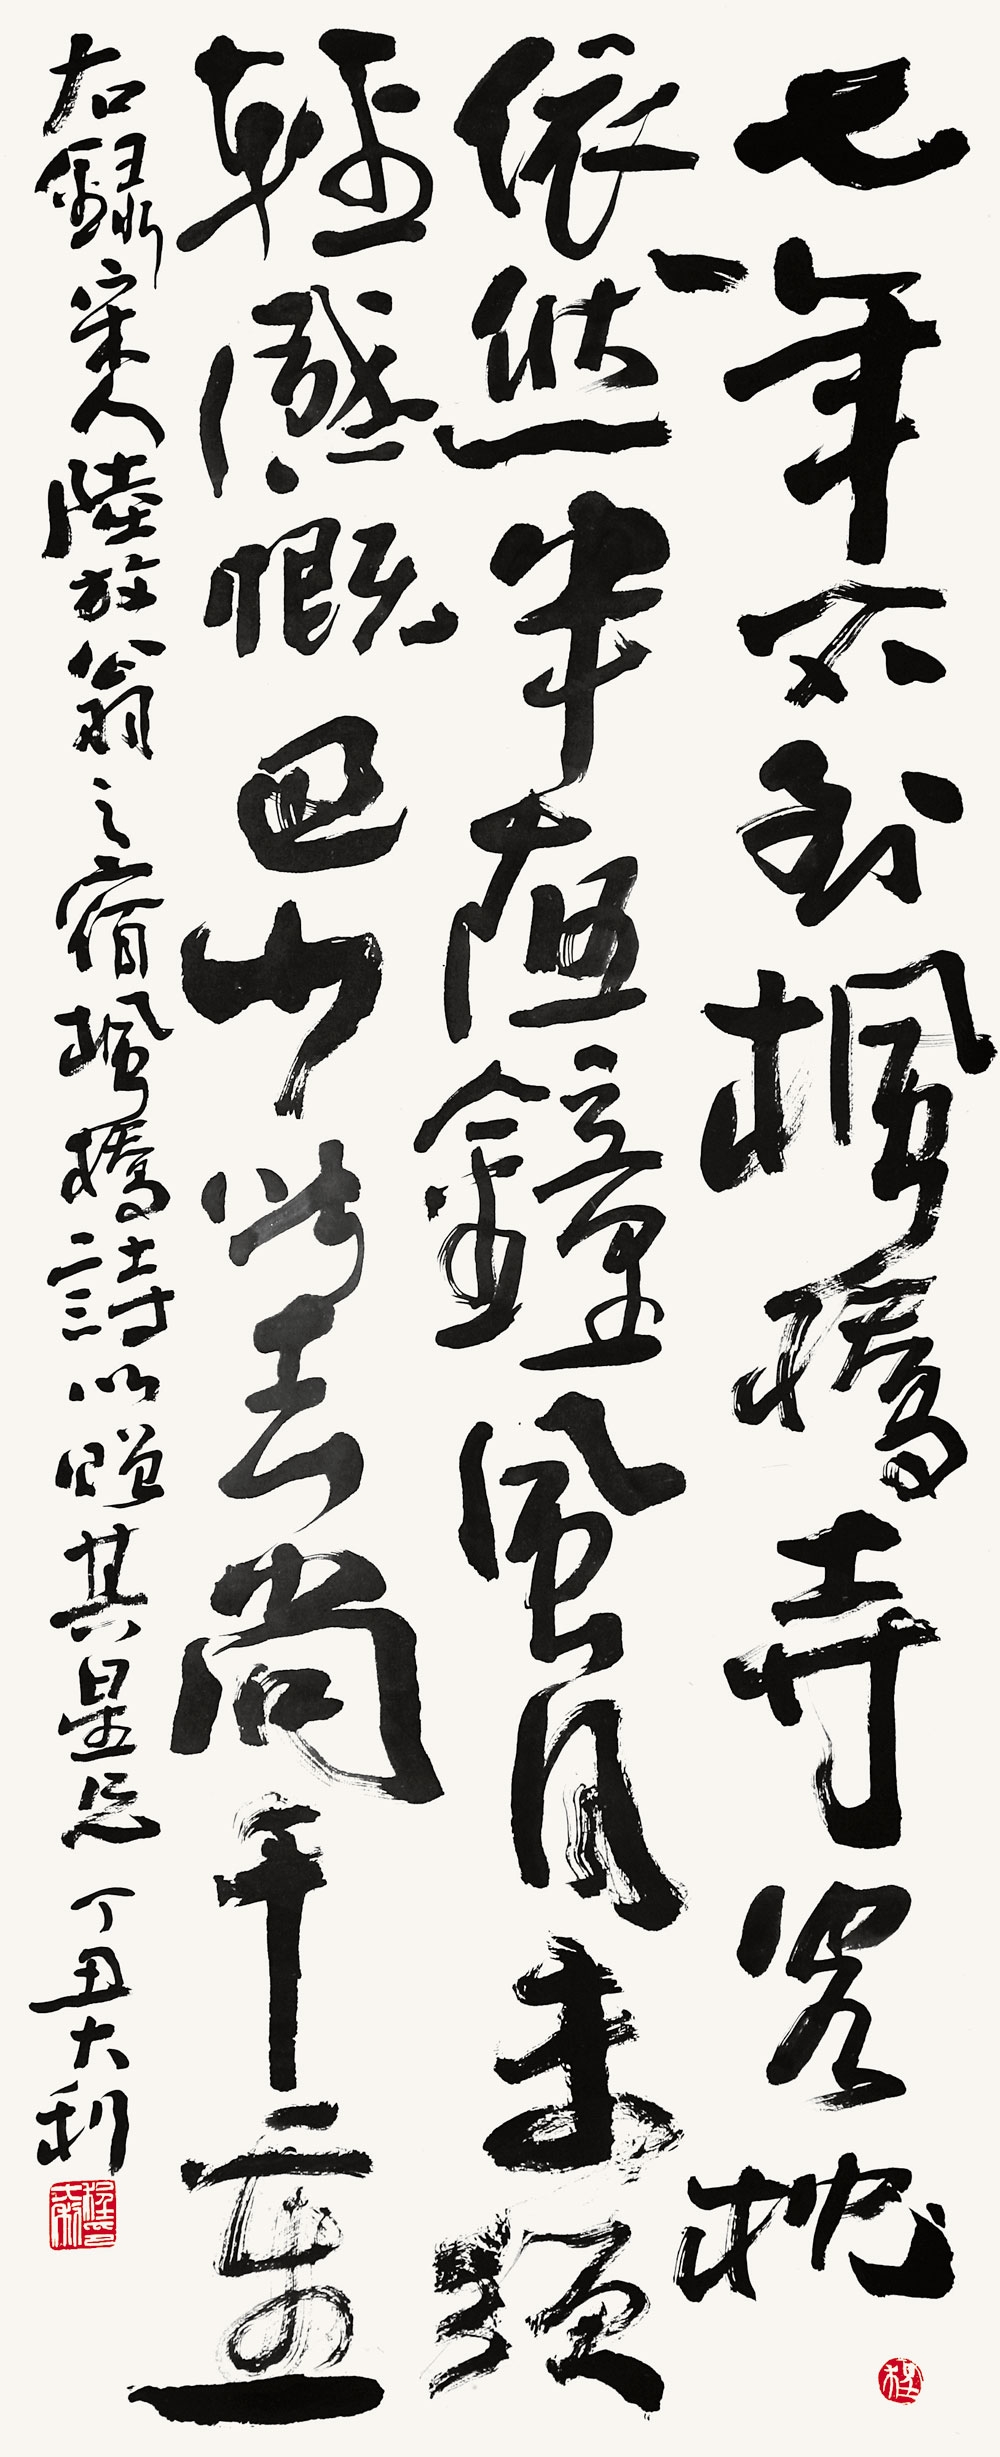 七年不到楓橋寺客枕
依然半夜鐘風月未須
輕感慨巴山此去尚千重
右錄宋人陸放翁之宿楓橋詩以贈其星兄 丁丑大利
程大利印
程